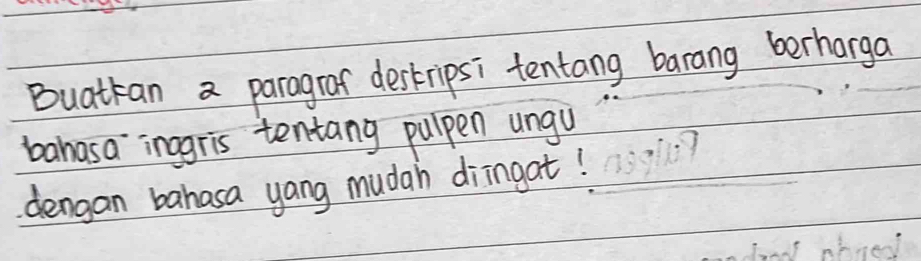 Buatkan 2 paragraf deskripsi tentang barang berharga
bahasa inggris tentang pulpen ungu
dengan bahasa yang mudah diingat!